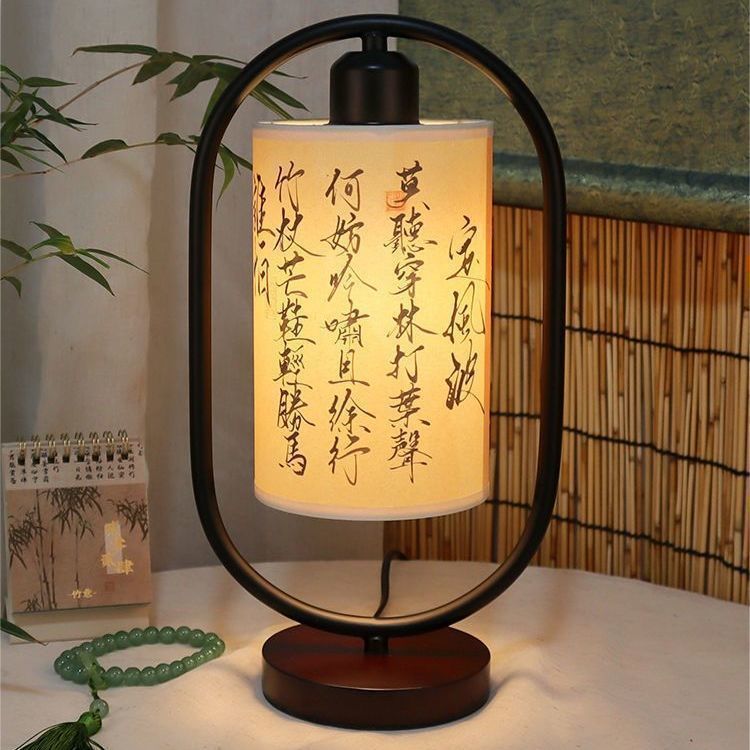 定風波
莫聽穿林打葉聲
何妨吟嘯且徐行
竹杖芒鞋輕勝馬
誰怕
竹意